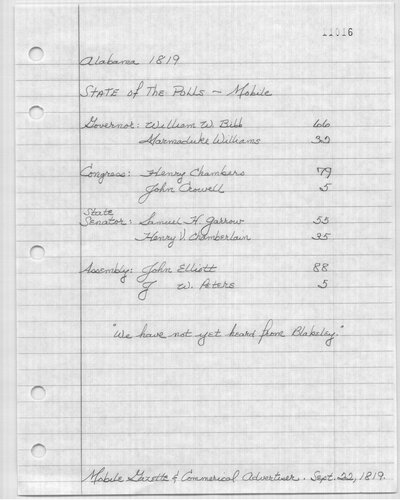 11016
Alabama 1819
STATE of The Polls - Mobile
Governor: William W. Bibb 66
Marmaduke Williams 32
Congress: Henry Chambers 79
John Crowell 5
State
Senator: Samuel H. Garrow 55
Henry V. Chamberlain 35
Assembly: John Elliott 88
J W. Peters 5
"We have not yet heard from Blakeley."
Mobile Gazette & Commerical Advertiser. Sept. 22, 1819.